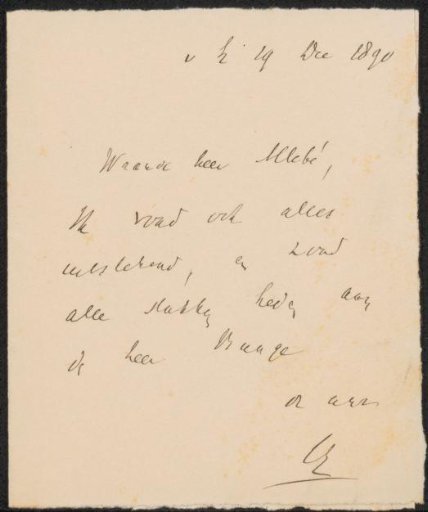 19 Dec 1890
Waarde heer Allebé,
Ik vond ook alles
uitstekend, en zond
alle stukken heden aan
de heer Bunge